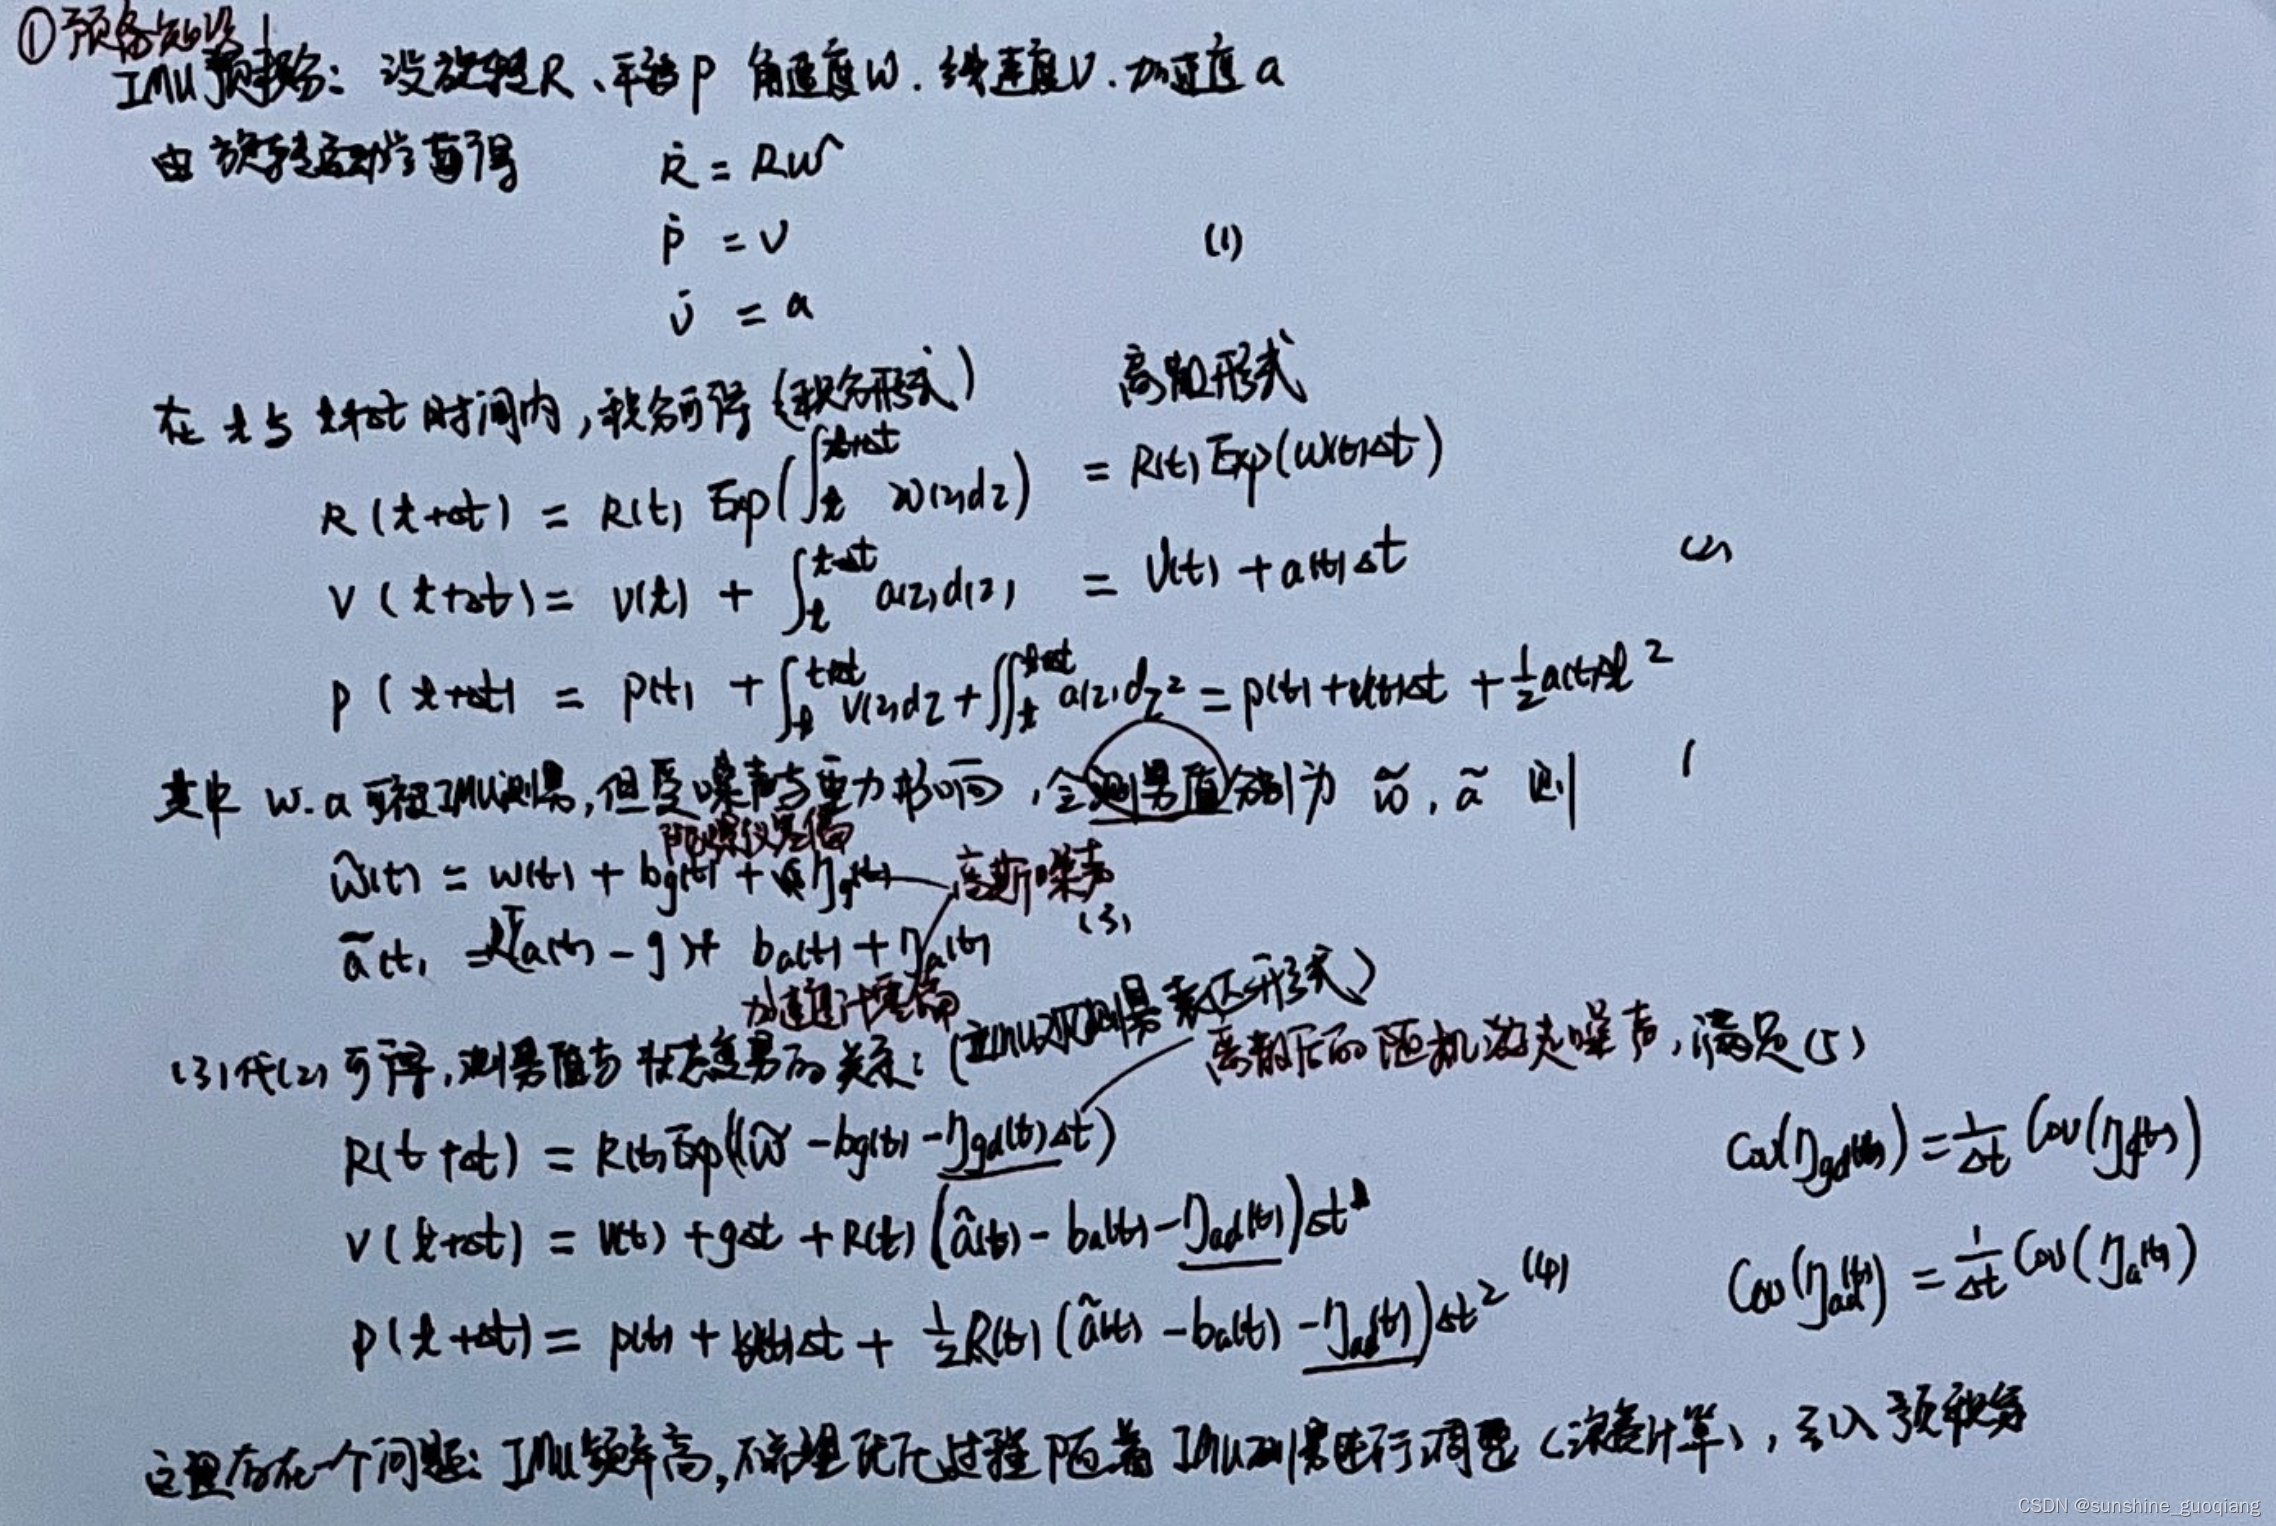 ①预备知识1
IMU预积分：设旋转R、平移p 角速度w.线速度v.加速度a
由旋转运动学可得 Ṙ = Rw^
ṗ = v (1)
v̇ = a
在t与t+Δt时间内,积分可得(积分形式) 离散形式
R(t+Δt) = R(t) Exp(∫_t^{t+Δt} w(z)dz) = R(t) Exp(w(t)Δt)
v(t+Δt) = v(t) + ∫_t^{t+Δt} a(z)d(z) = v(t) + a(t)Δt (2)
p(t+Δt) = p(t) + ∫_t^{t+Δt} v(z)dz + ∬_t^{t+Δt} a(z)dz² = p(t) + v(t)Δt + ½a(t)Δt²
其中 w.a可被IMU测量,但受噪声与重力影响,令测量值分别为 w̃, ã 则
陀螺仪零偏
w̃(t) = w(t) + bg(t) + ηg(t) 高斯噪声
(3)
ã(t) = Rᵀ(a(t) - g) + ba(t) + ηa(t)
加速度计零偏
(3)代(2)可得,测量值与状态变量的关系:(IMU观测量表达形式) 离散后的随机游走噪声,满足(5)
R(t+Δt) = R(t)Exp((w̃ - bg(t) - ηgd(t)Δt) Cov(ηgd(t)) = 1/Δt Cov(ηg(t))
v(t+Δt) = v(t) + gΔt + R(t)(ã(t) - ba(t) - ηad(t))Δt
(4) Cov(ηad(t)) = 1/Δt Cov(ηa(t))
p(t+Δt) = p(t) + v(t)Δt + ½R(t)(ã(t) - ba(t) - ηad(t))Δt²
这里存在一个问题: IMU频率高,不希望优化过程随着IMU测量进行调整(浪费计算),引入预积分
CSDN @sunshine_guoqiang